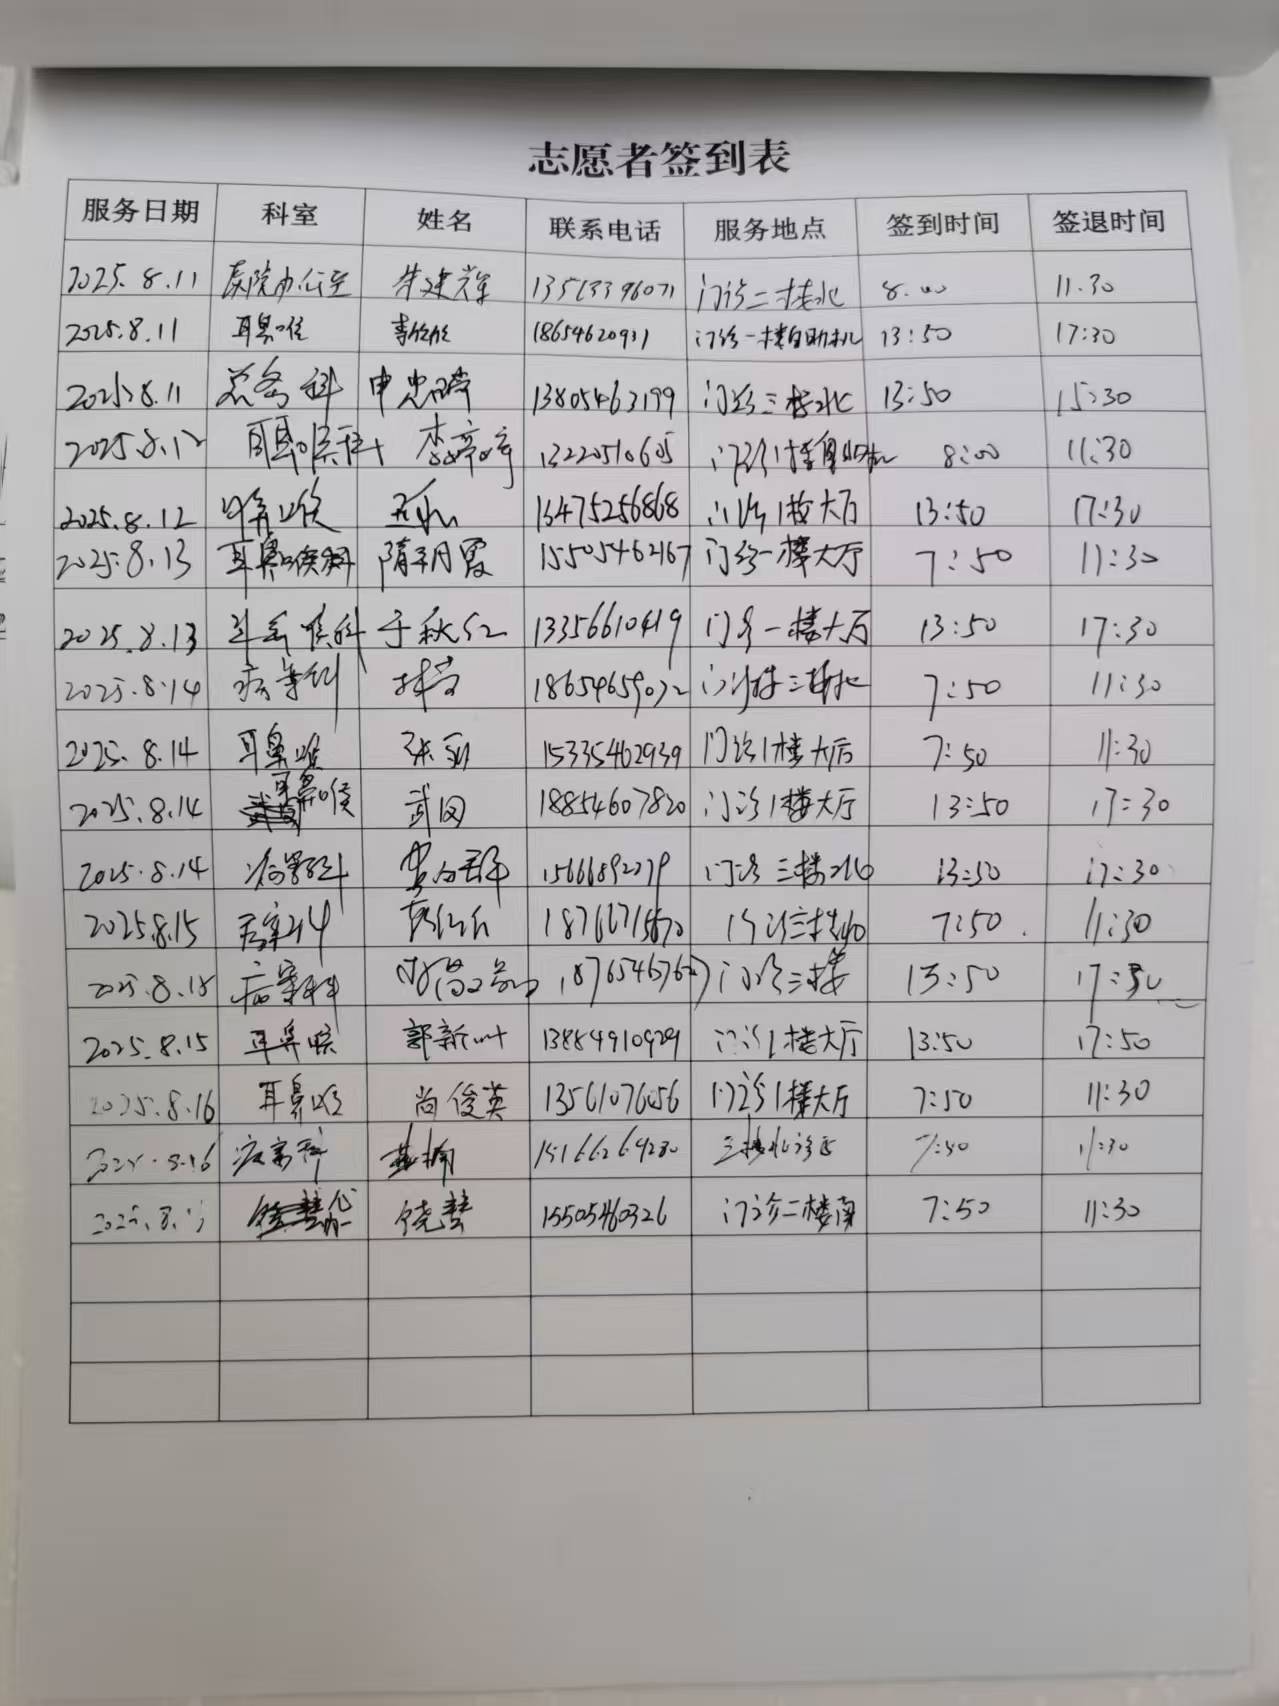 志愿者签到表
服务日期 科室 姓名 联系电话 服务地点 签到时间 签退时间
2025.8.11 医院办公室 牛建辉 13563396071 门诊二楼北 8.00 11.30
2025.8.11 耳鼻喉 18654620931 门诊一楼自助机 13:50 17:30
2025.8.11 总务科 申忠 13805463199 门诊三楼北 13:50 15:30
2025.8.12 耳鼻喉科 李婷婷 13220510605 门诊1楼自助机 8:00 11:30
2025.8.12 耳鼻喉 13475256868 门诊1楼大厅 13:50 17:30
2025.8.13 耳鼻喉科 隋明霞 15505462167 门诊一楼大厅 7:50 11:30
2025.8.13 耳鼻喉科 于秋红 13356610419 门诊一楼大厅 13:50 17:30
2025.8.14 病案科 18654659072 门诊楼三楼北 7:50 11:30
2025.8.14 耳鼻喉 张 15335462939 门诊1楼大厅 7:50 11:30
2025.8.14 耳鼻喉 武囡 18854607820 门诊1楼大厅 13:50 17:30
2025.8.14 病案科 15666892279 门诊三楼北 13:50 17:30
2025.8.15 病案科 18766715670 门诊三楼北 7:50 11:30
2025.8.15 病案科 门诊三楼 13:50 17:30
2025.8.15 耳鼻喉 郭新叶 13884910929 门诊1楼大厅 13:50 17:50
2025.8.16 耳鼻喉 尚俊英 13561076056 门诊1楼大厅 7:50 11:30
2025.8.16 病案科 15166264280 三楼北诊区 7:50 11:30
2025.8. 饶慧 15505460326 门诊二楼南 7:50 11:30